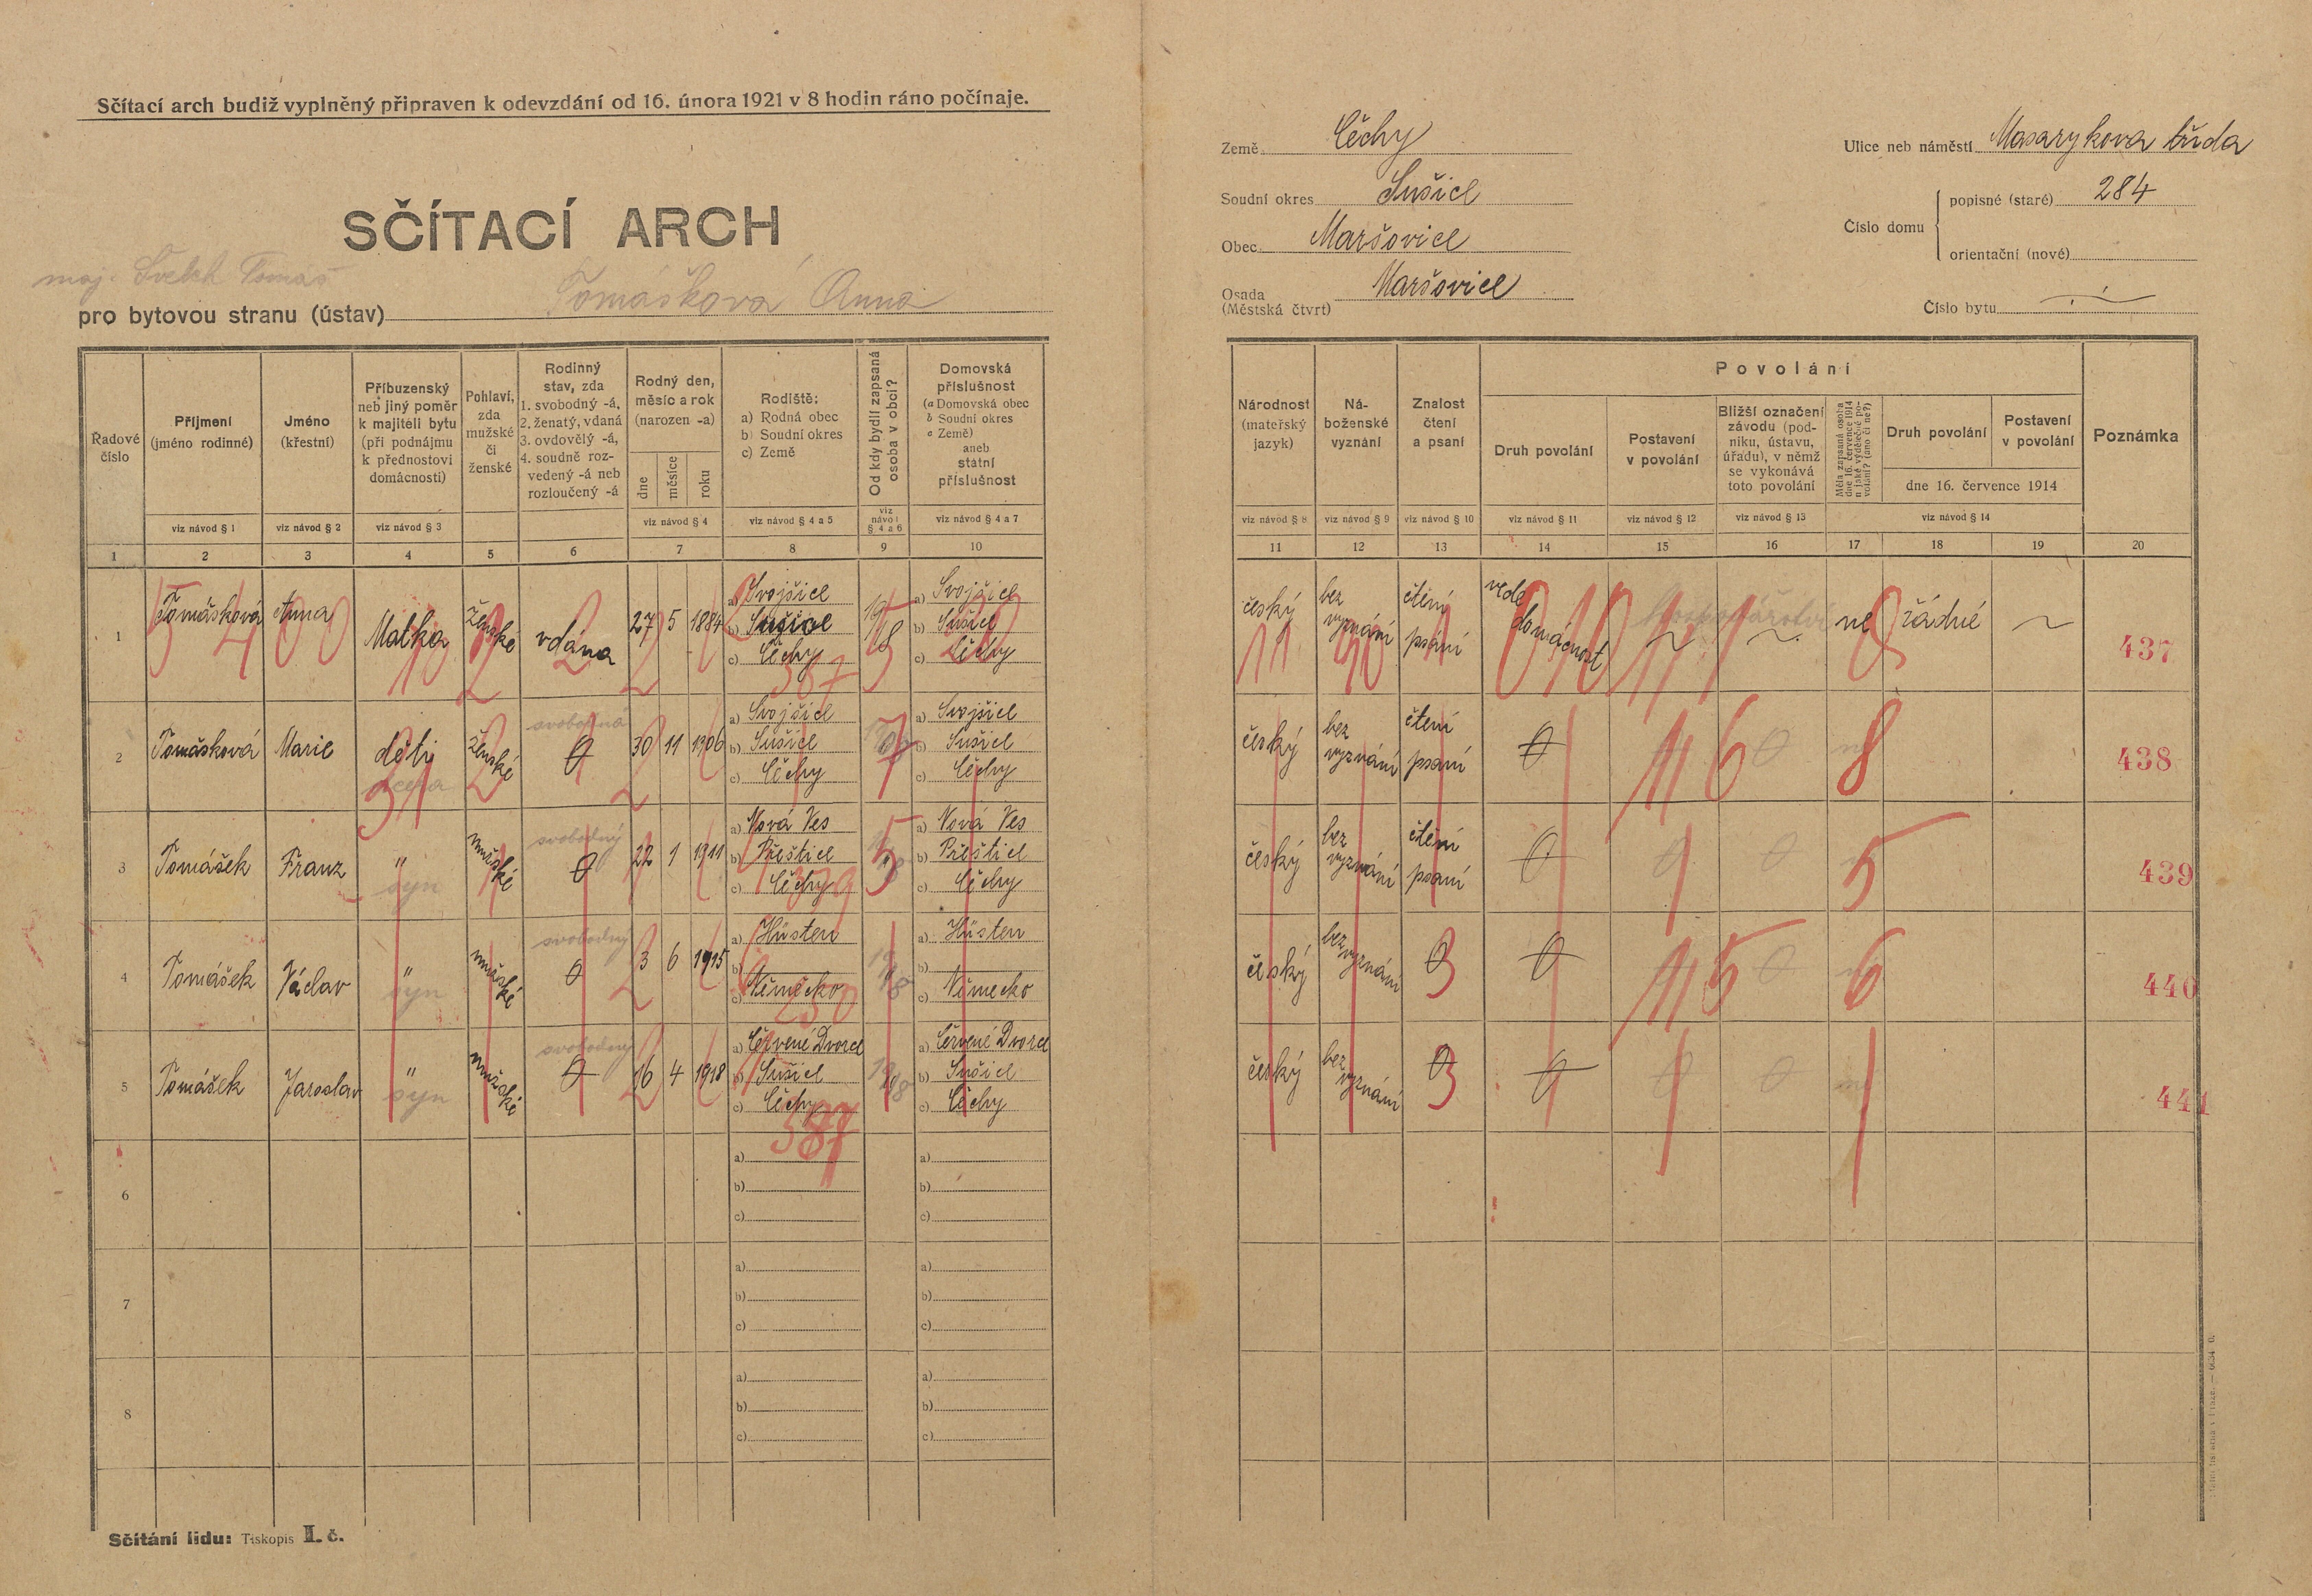 Sčítací arch budiž vyplněný připraven k odevzdání od 16. února 1921 v 8 hodin ráno počínaje.
SČÍTACÍ ARCH
maj. Švelch Tomáš
pro bytovou stranu (ústav) Tomáškova Anna
Země Čechy
Soudní okres Sušice
Obec Maršovice
Osada (Městská čtvrt) Maršovice
Ulice neb náměstí Masarykova třída
Číslo domu
popisné (staré) 284
orientační (nové)
Číslo bytu
Řadové číslo
Příjmení (jméno rodinné)
Jméno (křestní)
Příbuzenský neb jiný poměr k majiteli bytu (při podnájmu k přednostovi domácnosti)
Pohlaví, zda mužské či ženské
Rodinný stav, zda 1. svobodný -á, 2. ženatý, vdaná 3. ovdovělý -á, 4. soudně rozvedený -á neb rozloučený -á
Rodný den, měsíc a rok (narozen -a)
dne měsíce roku
Rodiště: a) Rodná obec b) Soudní okres c) Země
Od kdy bydlí zapsaná osoba v obci?
Domovská příslušnost (a Domovská obec b Soudní okres c Země) aneb státní příslušnost
Národnost (mateřský jazyk)
Náboženské vyznání
Znalost čtení a psaní
Povolání
Druh povolání
Postavení v povolání
Bližší označení závodu (podniku, ústavu, úřadu), v němž se vykonává toto povolání
Měla zapsaná osoba dne 16. července 1914 nějaké výdělečné povolání? (ano či ne?)
Druh povolání
Postavení v povolání
dne 16. července 1914
Poznámka
viz návod § 1 viz návod § 2 viz návod § 3 viz návod § 4 viz návod § 4 a 5 viz návod § 4 a 6 viz návod § 4 a 7
viz návod § 8 viz návod § 9 viz návod § 10 viz návod § 11 viz návod § 12 viz návod § 13 viz návod § 14
1 2 3 4 5 6 7 8 9 10 11 12 13 14 15 16 17 18 19 20
1 Tomášková Anna Matka ženské vdána 27 5 1884 a) Svojšice b) Sušice c) Čechy 1918 a) Svojšice b) Sušice c) Čechy český bez vyznání čtení psaní vede domácnost ne řádné 437
2 Tomášková Marie děti dcera ženské svobodná 0 30 11 1906 a) Svojšice b) Sušice c) Čechy a) Svojšice b) Sušice c) Čechy český bez vyznání čtení psaní 0 0 438
3 Tomášek Franz " syn mužské svobodný 0 22 1 1911 a) Nová Ves b) Přeštice c) Čechy a) Nová Ves b) Přeštice c) Čechy český bez vyznání čtení psaní 0 0 0 439
4 Tomášek Václav " syn mužské svobodný 0 3 6 1915 a) Hüsten b) c) Německo 1918 a) Hüsten b) c) Německo český bez vyznání 0 0 0 440
5 Tomášek Jaroslav " syn mužské svobodný 0 16 4 1918 a) Červené Dvorce b) Sušice c) Čechy 1918 a) Červené Dvorce b) Sušice c) Čechy český bez vyznání 0 0 0 0 441
6 a) b) c) a) b) c)
7 a) b) c) a) b) c)
8 a) b) c) a) b) c)
Sčítání lidu: Tiskopis II. č.